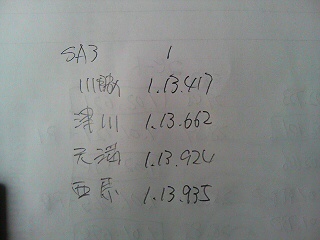 SA3 1
川畝 1.13.417
津川 1.13.662
天満 1.13.924
西原 1.13.935